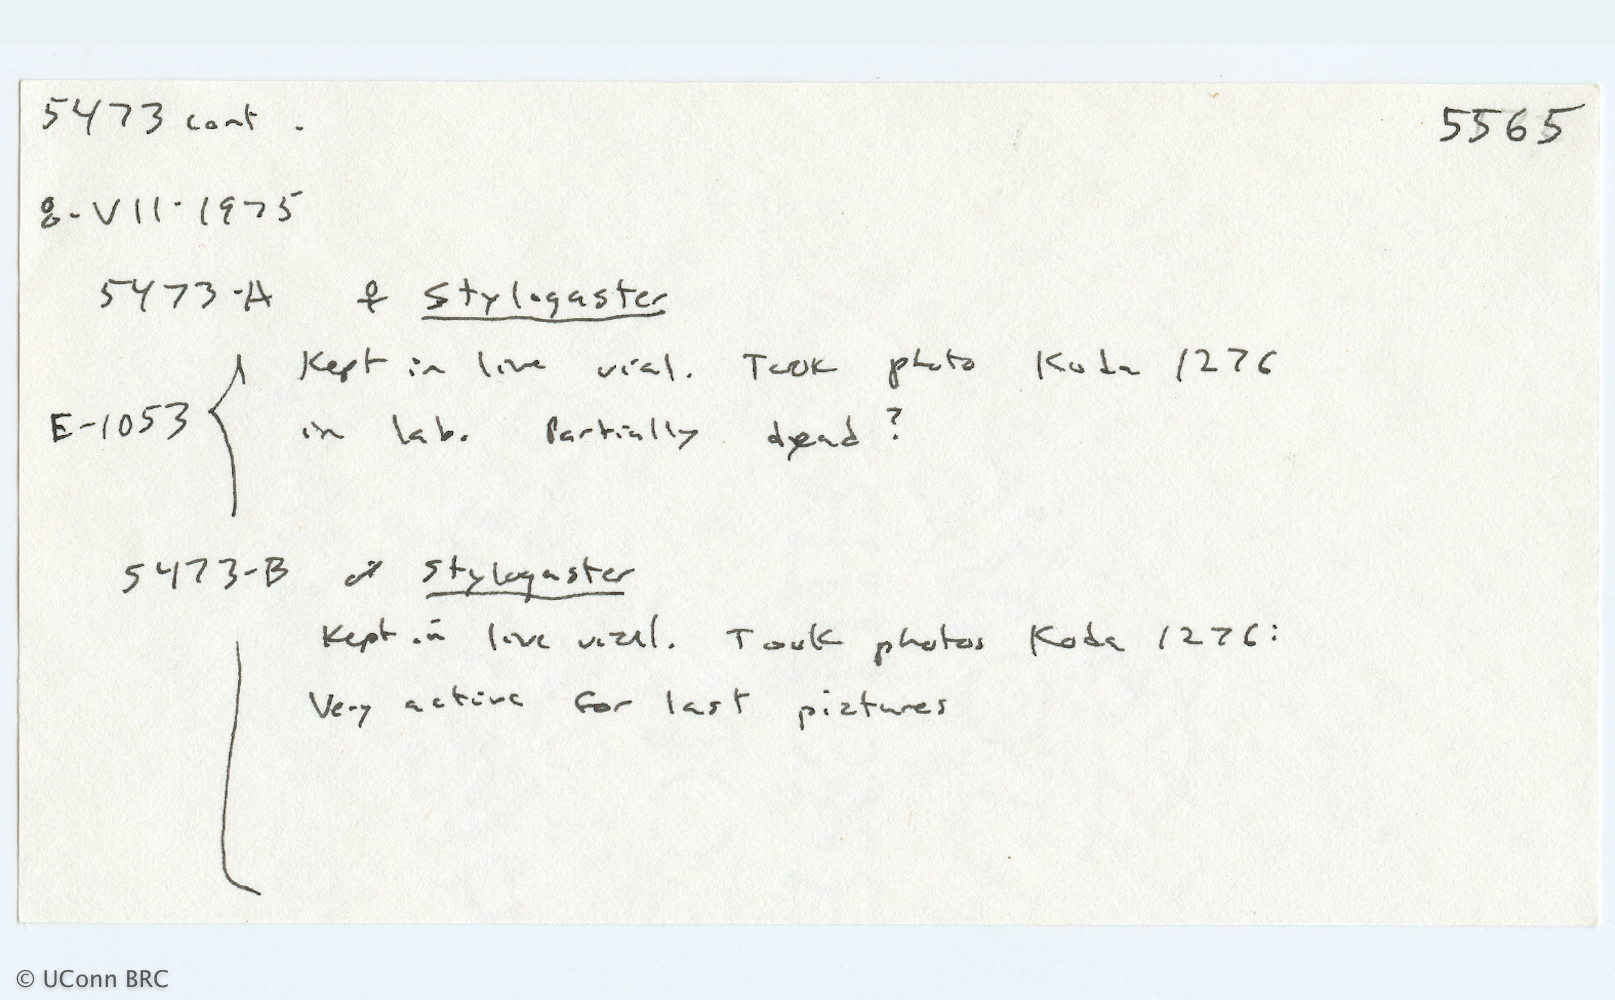 5473 cont.
5565
8-VII-1975
5473-A ♀ Stylogaster
Kept in live vial. Took photo Koda 1276
E-1053
in lab. Partially dead?
5473-B ♂ Stylogaster
Kept in live vial. Took photos Koda 1276:
Very active for last pictures
© UConn BRC